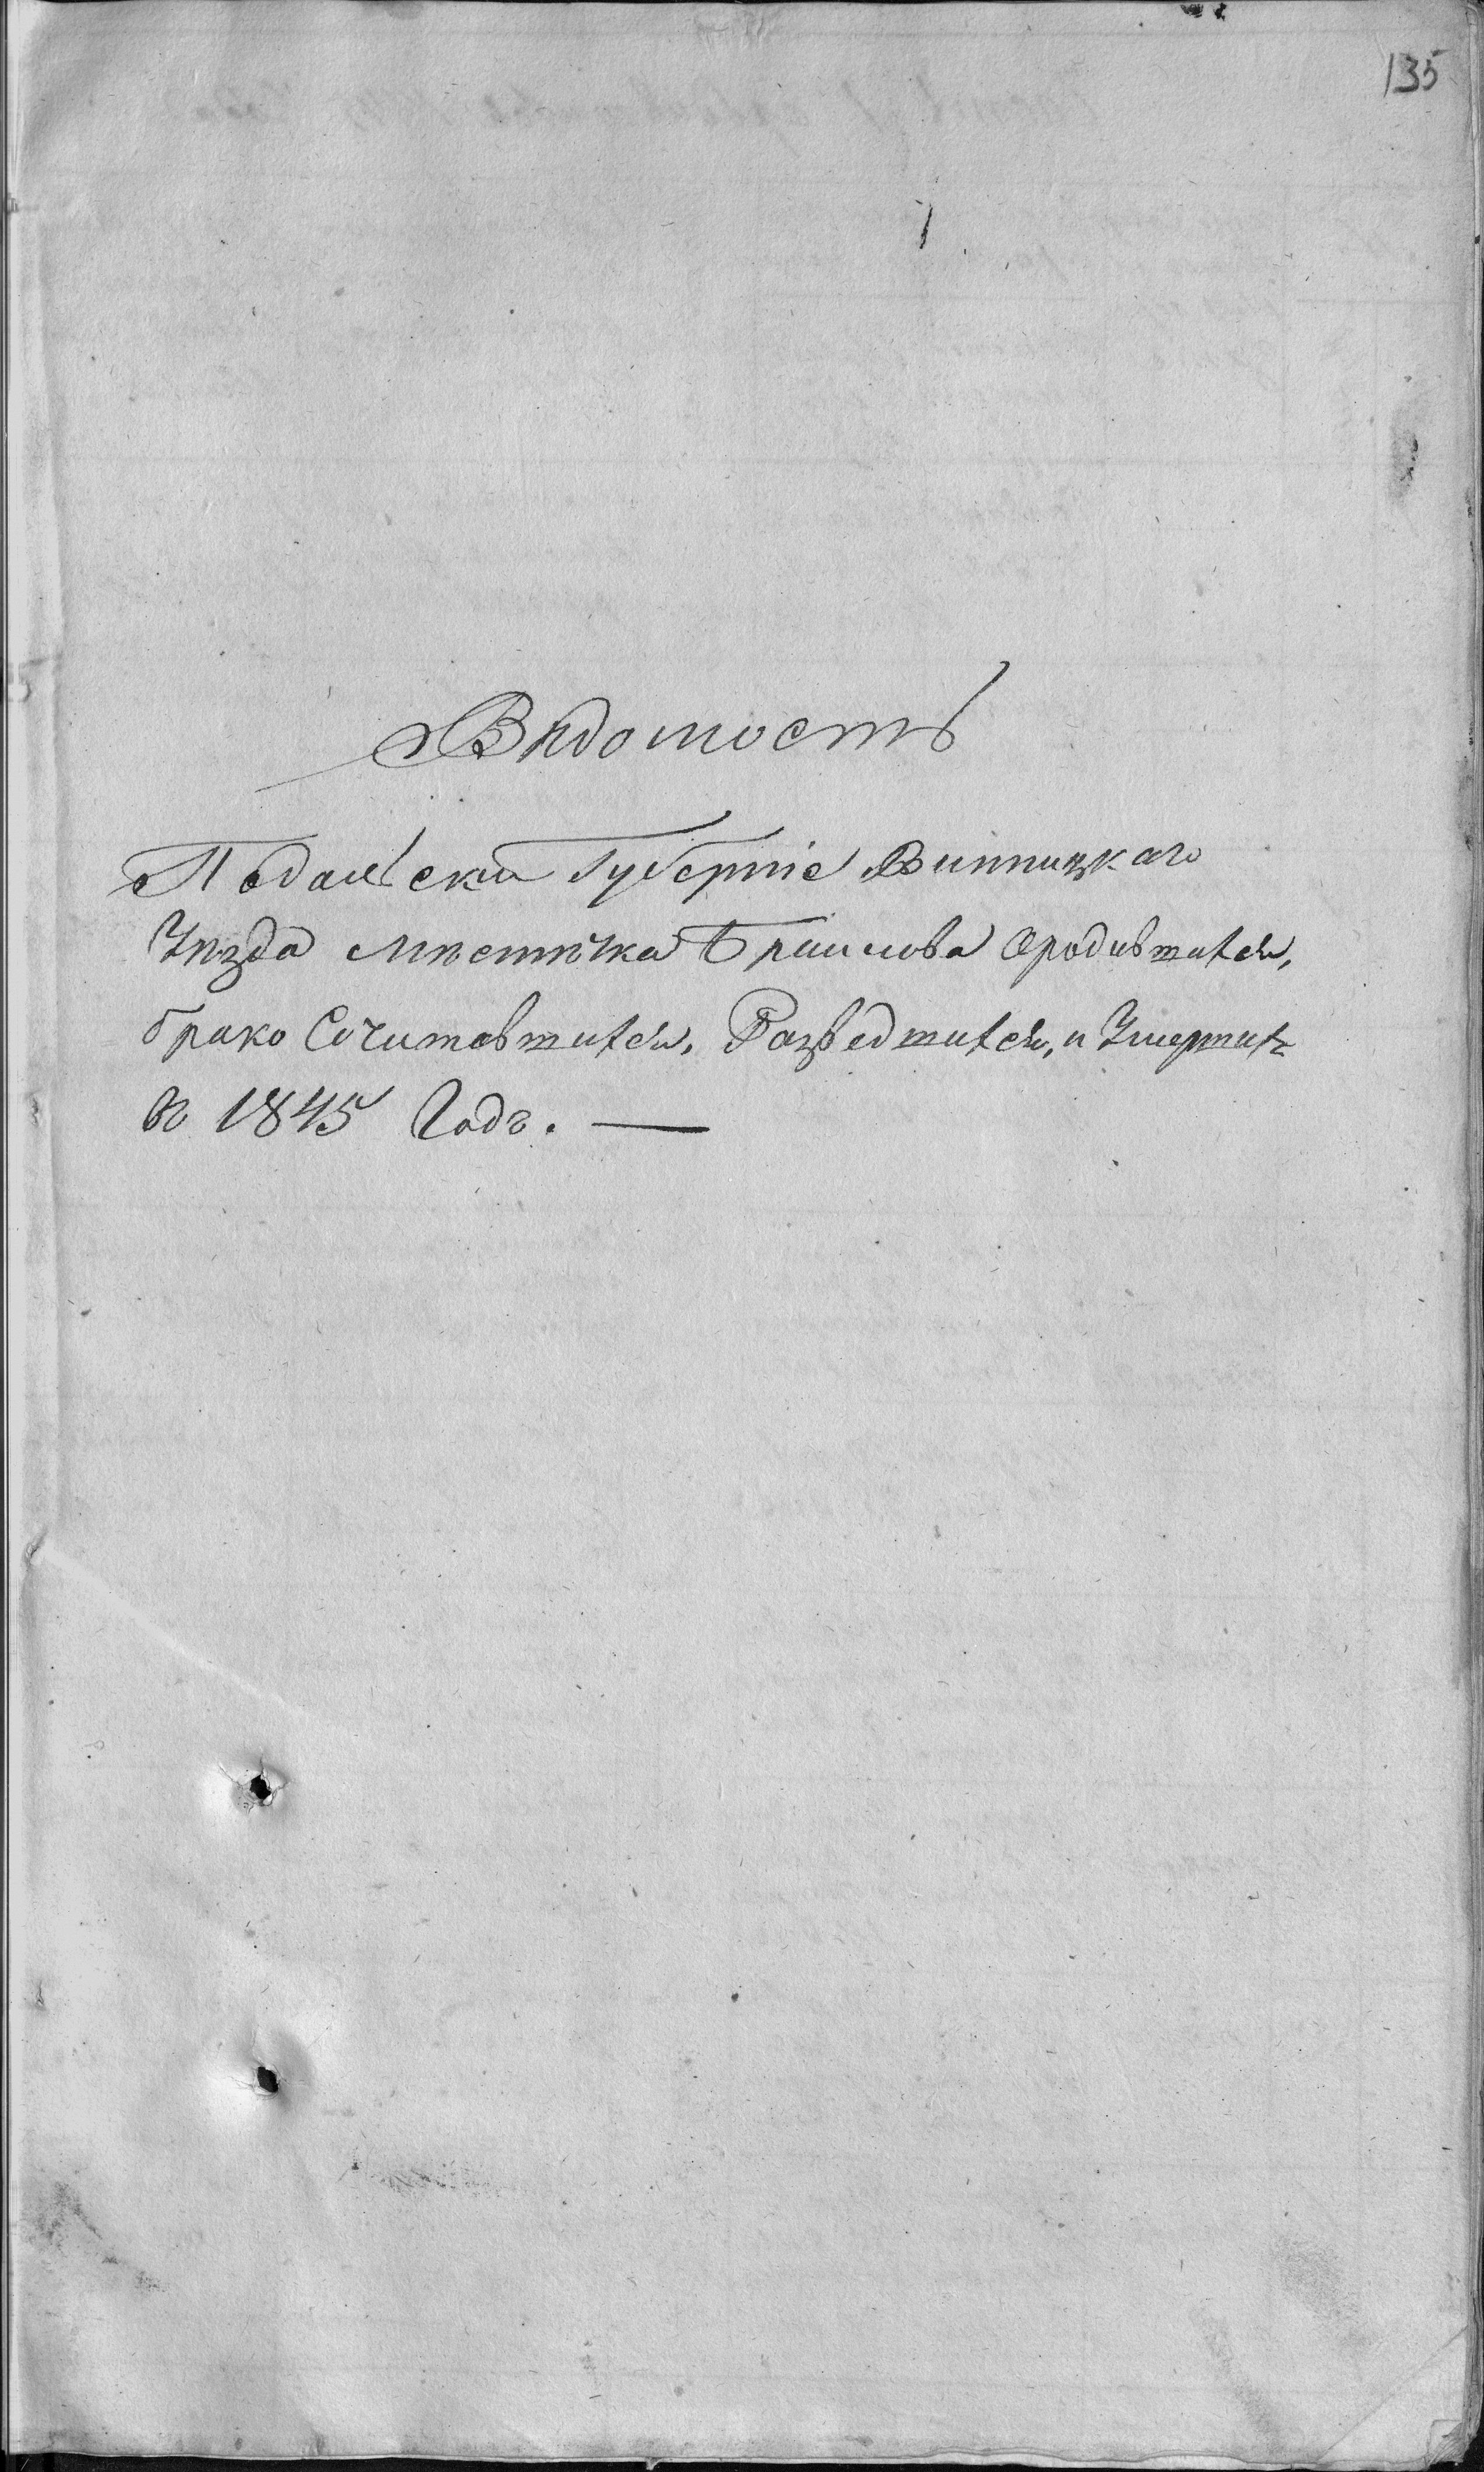 135
Вѣдомость
Подальский Губерніе Винницкаго
Уѣзда Мѣстѣчка Браилова Ородившихся,
брако Сочитавшихся, Разведшихся, и Умершихъ
въ 1845 Годъ. —